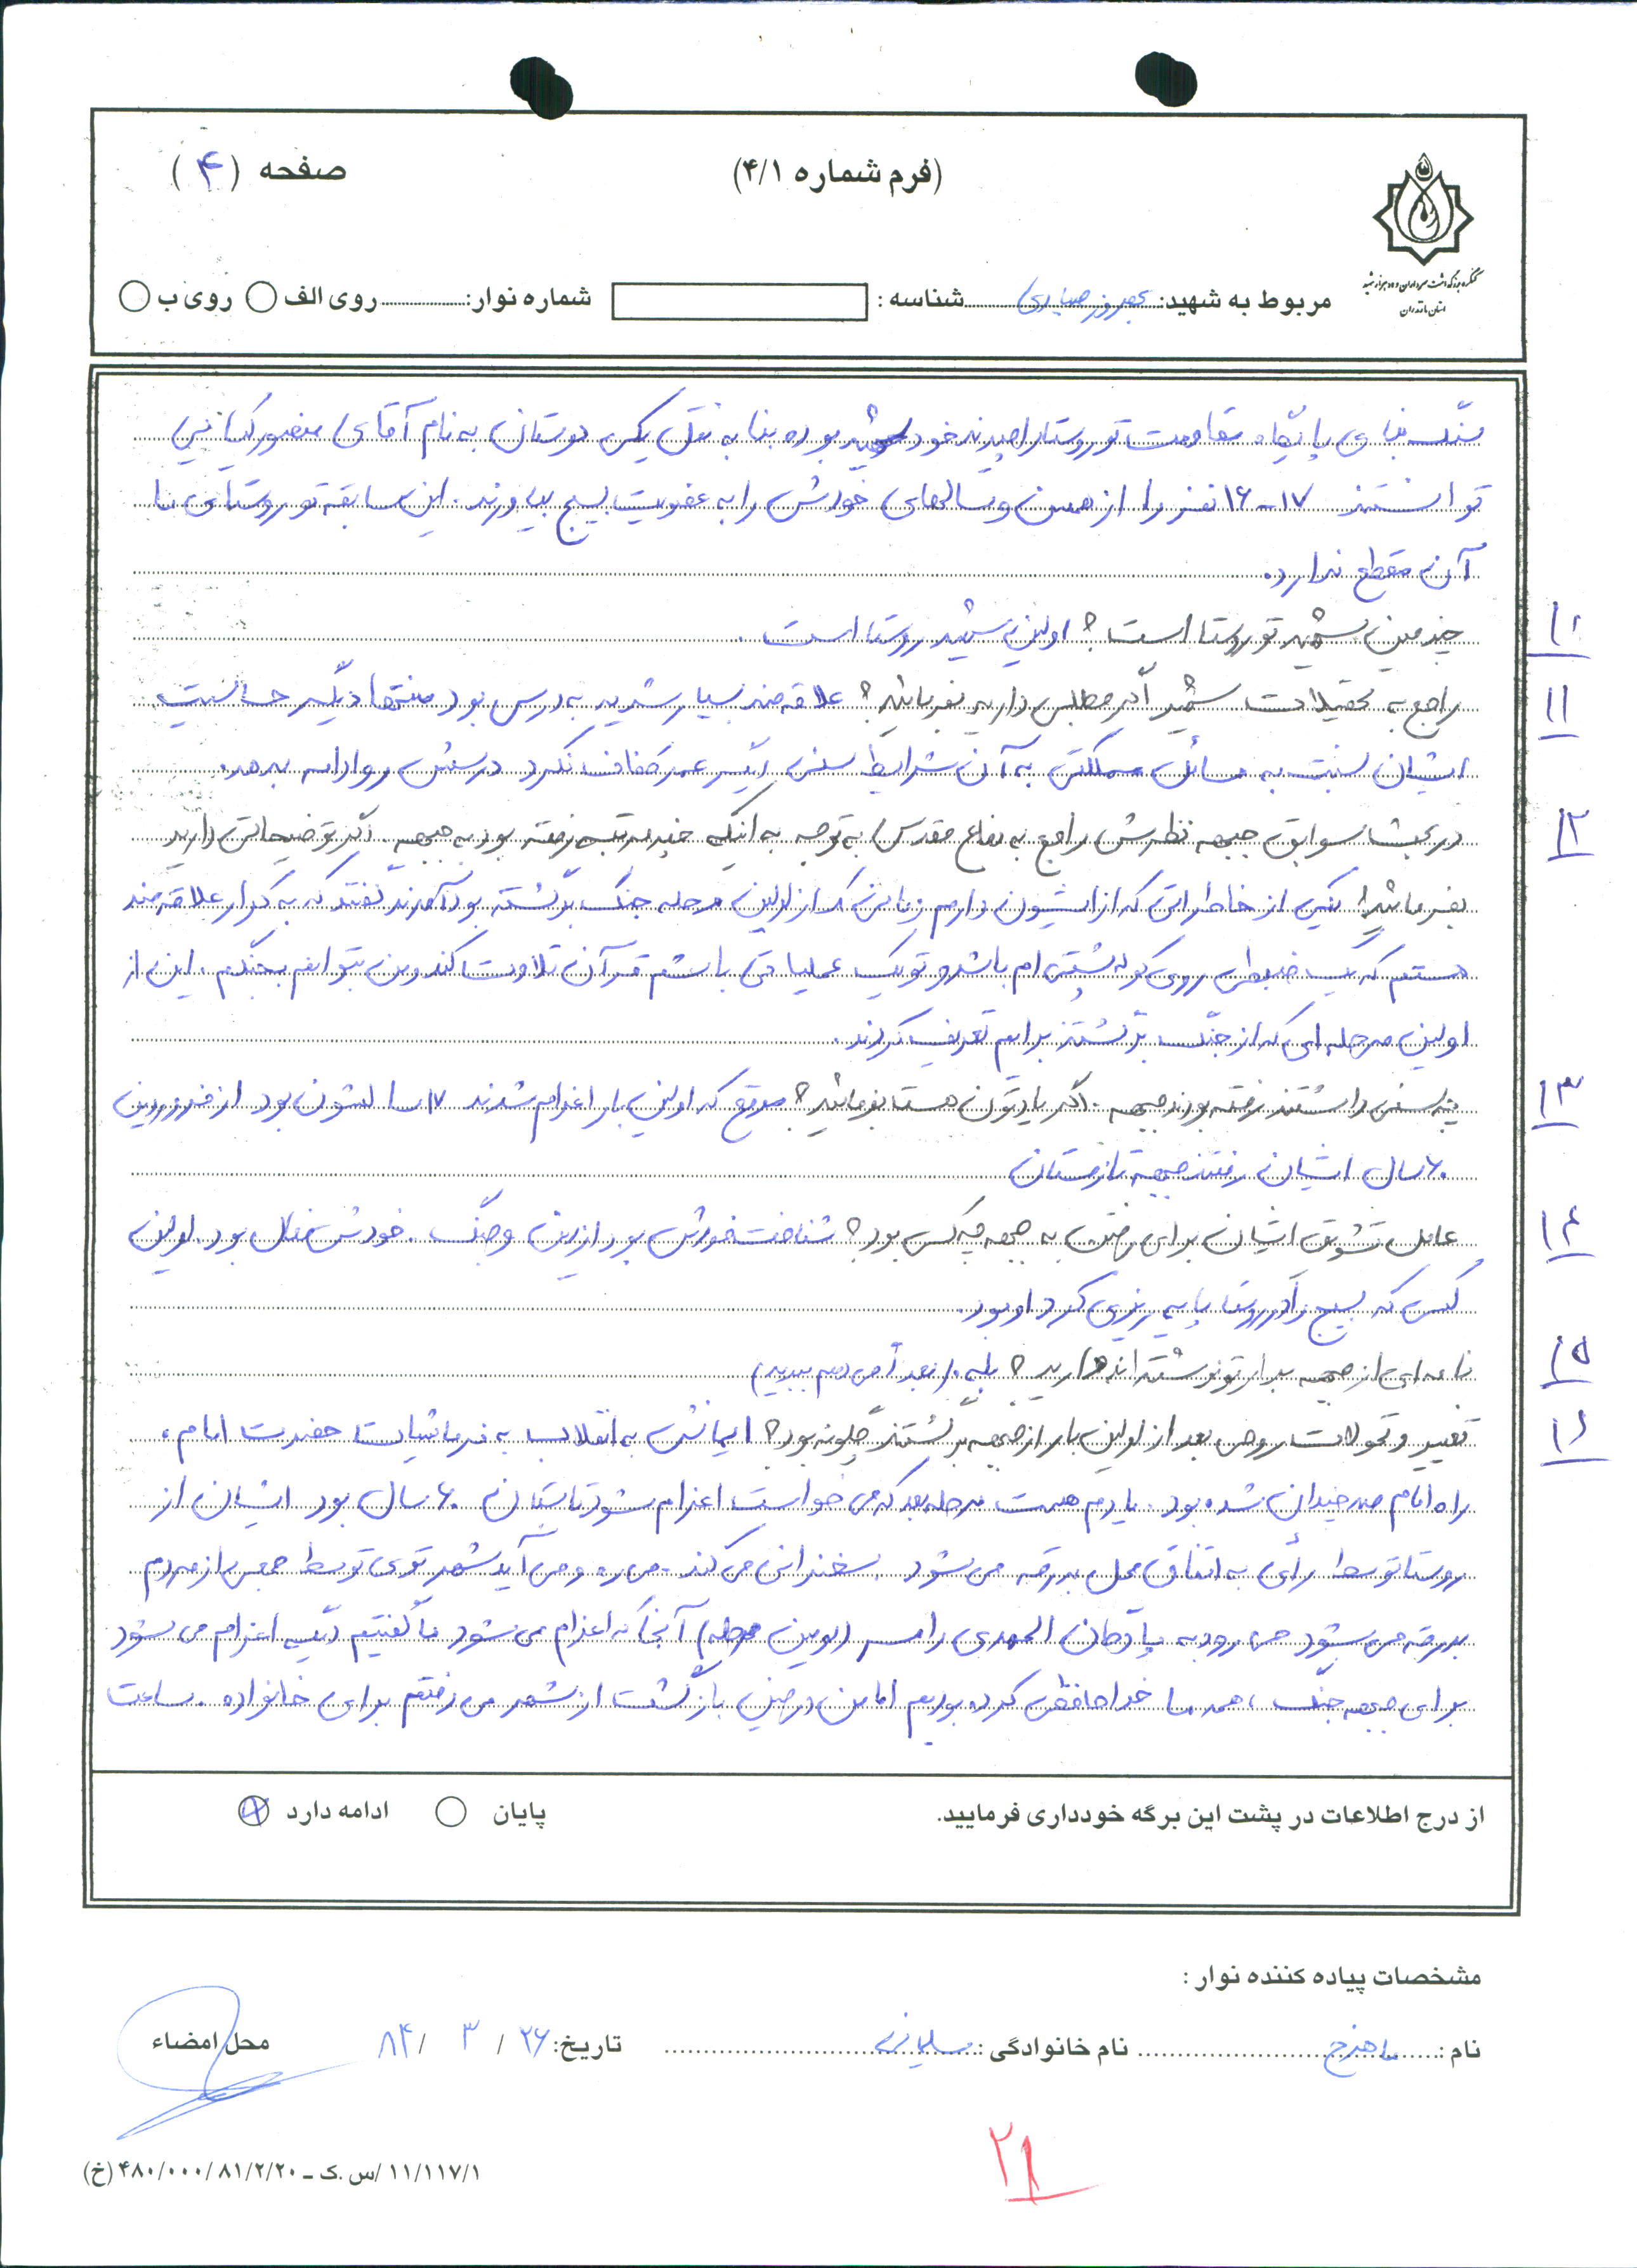 (فرم شماره ۴/۱)
صفحه (۴)
کنگره بزرگداشت سرداران و ده هزار شهید
استان مازندران
مربوط به شهید: بهروز صیادی شناسه : شماره نوار: روی الف روی ب
سنگ بنای پایگاه مقاومت تو روستا را می‌زند خود شهید بوده بنا به نقل یکی دوستان به نام آقای منصور کیانی
توانستند ۱۷-۱۶ نفر را از همسن و سالهای خودش را به عضویت بسیج بیاورند. این سابقه تو روستای ما
آن مقطع ندارد.
۱۰ چندمین شهید تو روستا است؟ اولین شهید روستا است.
۱۱ راجع به تحصیلات شهید اگر مطلبی دارید بفرمائید؟ علاقه‌مند بسیار شدید به درس بود منتها دیگر حساسیت
ایشان نسبت به مسائل مملکتی به آن شرایط سنی دیگر عمر کفاف نکرد درسش رو ادامه بدهد.
۱۲ در بحث سوابق جبهه نظرش راجع به دفاع مقدس با توجه به اینکه چند مرتبه رفته بود به جبهه. اگر توضیحاتی دارید
بفرمائید! یکی از خاطراتی که از ایشون دارم زمانی که از اولین مرحله جنگ برگشته بود آمدند گفتند که به کرار علاقه‌مند
هستم که یک ضبطی روی کوله پشتی ام باشد و تو یک عملیاتی باشم قرآن تلاوت کند و من بتوانم بجنگم. این از
اولین مرحله ای که از جنگ برگشتند برایم تعریف کردند.
۱۳ چه سنی داشتند رفته بودند جبهه. اگر یادتون هست بفرمائید؟ موقع که اولین بار اعزام شدند ۱۷ سالشون بود از فروردین
۶۰ سال ایشان رفتند جبهه تا زمستان
۱۴ عامل تشویق ایشان برای رفتن به جبهه چه کسی بود؟ شناخت خودش بود از دین و جنگ. خودش فعال بود. اولین
کسی که بسیج را در روستا پایه ریزی کرد او بود.
۱۵ نامه ای از جبهه برای تو نوشته اند دارید؟ بله. (بعداً می دهم ببرید)
۱۶ تغییر و تحولات روحی بعد از اولین بار از جبهه برگشتند چگونه بود؟ ایمانش به انقلاب به فرمائشات حضرت امام،
راه امام صد چندان شده بود. یادم هست مرحله بعد که می خواست اعزام شود تابستان ۶۰ سال بود ایشان از
روستا توسط رأی به اتفاق محل بدرقه می شود. سخنرانی می کند. می ره و می آید شهر توی توسط جمعی از مردم
بدرقه می شود می رود به پادگان المهدی رامسر (دومین مرحله) آنجا که اعزام می شود ما گفتیم دیگه اعزام می شود
برای جبهه جنگ، همه ما خداحافظی کرده بودیم اما من در حین بازگشت از شهر می رفتم برای خانواده. ساعت
از درج اطلاعات در پشت این برگه خودداری فرمایید.
پایان ادامه دارد
مشخصات پیاده کننده نوار :
نام : ماهرخ نام خانوادگی : سلیمانی تاریخ: ۲۶ / ۳ / ۸۴ محل امضاء
۲۱
۱۱/۱۱۷/۱ /س.ک – ۴۸۰/۰۰۰/۸۱/۲/۲۰ (خ)